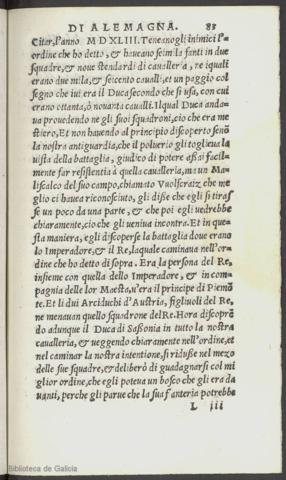 DI ALEMAGNA. 83
Citar, l'anno MDXLIII. Teneanogli inimici l'-
ordine che ho detto, & haueano sei mila fanti in due
squadre, & noue stendardi di caualleria, te iquali
erano due mila, & seicento caualli, et un paggio col
segno che iui era il Duca secondo che si usa, con cui
erano ottanta, ò nouanta caualli. Ilqual Duca anda-
ua prouedendo ne gli suoi squadroni, cio che era me
stiero, Et non hauendo al principio discoperto senõ
la nostra antiguardia, che il poluerio gli toglieua la
uista della battaglia, giudico di potere assai facil-
mente far resistentia à quella caualleria, ma un Ma-
liscalco del suo campo, chiamato Vuolfcraiz, che me
glio ci hauea riconosciuto, gli disse che egli si tiras
se un poco da una parte, & che poi egli uedrebbe
chiaramente, cio che gli ueniua incontra. Et in que-
sta maniera, egli discoperse la battaglia doue erano
lo Imperadore, & il Re, laquale caminaua nell'or-
dine che ho detto di sopra. Era la persona del Re,
insieme con quella dello Imperadore, & in com-
pagnia delle lor Maestà, u'era il principe di Piemõ
te. Et li dui Arciduchi d'Austria, figliuoli del Re,
ne menauan quello squadrone del Re. Hora discoprẽ
do adunque il Duca di Sassonia in tutto la nostra
caualleria, & ueggendo chiaramente nell'ordine, et
nel caminar la nostra intentione, si ridusse nel mezo
delle sue squadre, & deliberò di guadagnarsi col mi
glior ordine, che egli poteua un bosco che gli era da
uanti, perche gli parue che la sua fanteria potrebbe
L iii
Biblioteca de Galicia